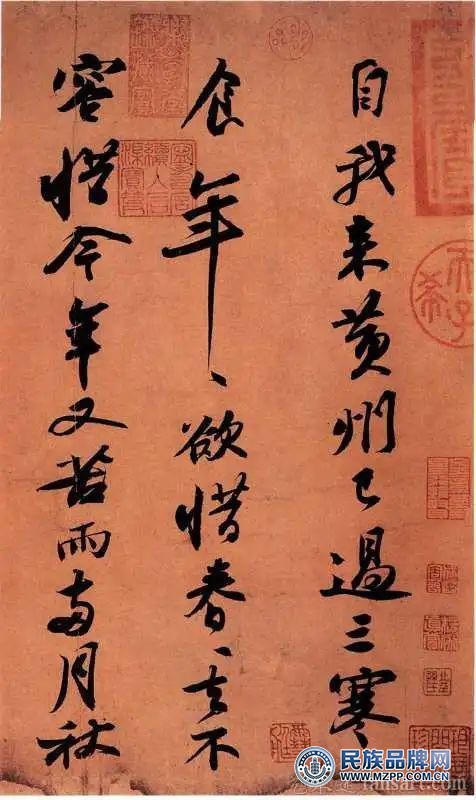 自我来黄州已過三寒
食年〻欲惜春〻去不
容惜今年又苦雨两月秋
天子
希
民族品牌网
WWW.MZPP.COM.CN